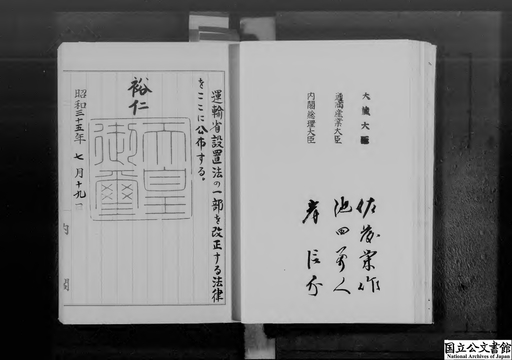 大蔵大臣
佐藤栄作
通商産業大臣
池田勇人
内閣総理大臣
岸信介
運輸省設置法の一部を改正する法律
をここに公布する。
裕仁
天皇
御璽
昭和三十五年七月十九
内閣
国立公文書館
National Archives of Japan